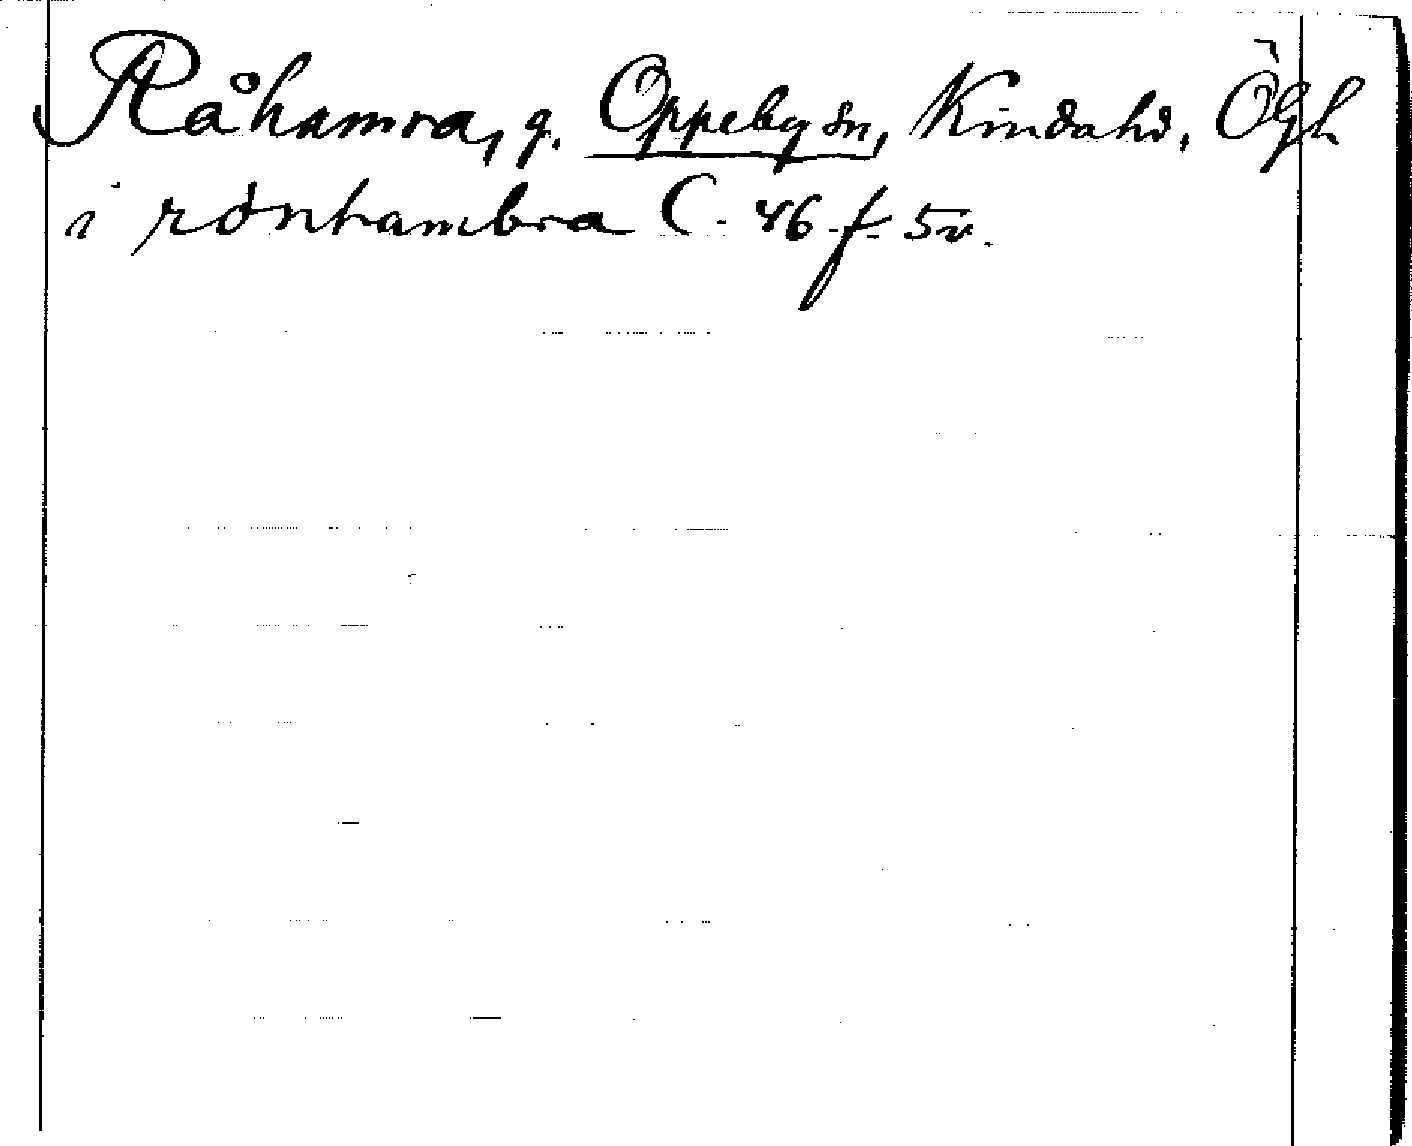 Råhamra, g. Oppeby sn, Kinda hd, Ögl
i rdnhambra C. 46 f. 5v.